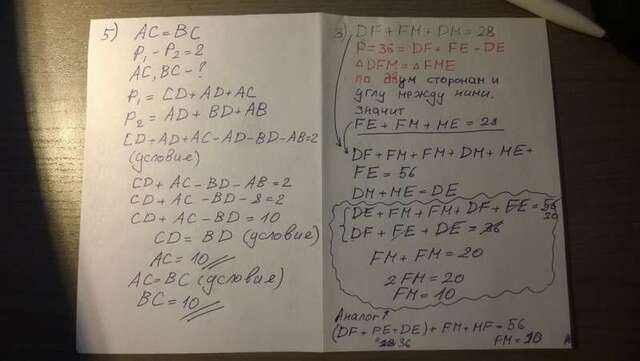 5) AC = BC
P₁ - P₂ = 2
AC, BC - ?
P₁ = CD + AD + AC
P₂ = AD + BD + AB
CD + AD + AC - AD - BD - AB = 2
(условие)
CD + AC - BD - AB = 2
CD + AC - BD - 8 = 2
CD + AC - BD = 10
CD = BD (условие)
AC = 10
AC = BC (условие)
BC = 10
3) DF + FM + DM = 28
P = 36 = DF + FE - DE
△DFM = △FME
по двум сторонам и
углу между ними.
Значит
FE + FM + ME = 28
DF + FM + FM + DM + ME +
FE = 56
DM + ME = DE
DE + FM + FM + DF + FE = 56
20
DF + FE + DE = 36
FM + FM = 20
2FM = 20
FM = 10
Аналог
(DF + FE + DE) + FM + MF = 56
36
FM = 10